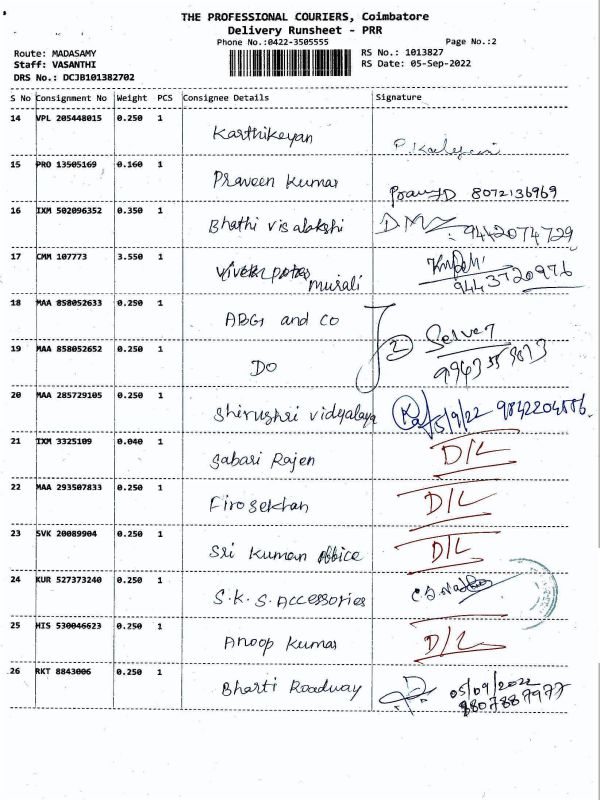 THE PROFESSIONAL COURIERS, Coimbatore
Delivery Runsheet - PRR
Phone No.:0422-3505555 Page No.:2
Route: MADASAMY RS No.: 1013827
Staff: VASANTHI RS Date: 05-Sep-2022
DRS No.: DCJB101382702
S No Consignment No Weight PCS Consignee Details Signature
14 VPL 205448015 0.250 1 Karthikeyan
15 PRO 13505169 0.160 1 Praveen Kumar 8072136969
16 IXM 502096352 0.350 1 Bhathi visalakshi 9442074729
17 CMM 107773 3.550 1 murali 9443720976
18 MAA 858052633 0.250 1 ABG and CO
19 MAA 858052652 0.250 1 DO 2 Selva
20 MAA 285729105 0.250 1 Shirushri vidyalaya 5/9/22
21 IXM 3325109 0.040 1 Sabari Rajen D/L
22 MAA 293507833 0.250 1 Firosekhan D/L
23 SVK 20089904 0.250 1 Sri Kumaran office D/L
24 KUR 527373240 0.250 1 S.K.S. Accessories
25 HIS 530046623 0.250 1 Anoop Kumar D/L
26 RKT 8843006 0.250 1 Bharti Roadway 05/09/2022
8807887977